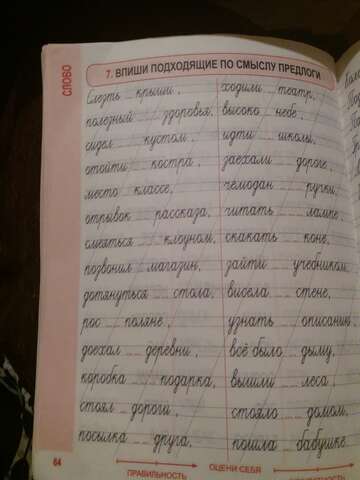 СЛОВО
7. ВПИШИ ПОДХОДЯЩИЕ ПО СМЫСЛУ ПРЕДЛОГИ
Слезть __ крыши, ходили __ театр,
полезный __ здоровья, высоко __ небе,
сидел __ кустом, идти __ школы,
отойти __ костра, заехали __ дороге,
место __ классе, чемодан __ ручки,
отрывок __ рассказа, читать __ лампе,
смеяться __ клоуном, скакать __ коне,
позвонил __ магазин, зайти __ учебником,
дотянуться __ стола, висела __ стене,
рос __ поляне, узнать __ описанию,
доехал __ деревни, всё было __ дыму,
коробка __ подарка, вышли __ леса,
стоял __ дороги, стояло __ домом,
посылка __ друга, пошла __ бабушке
64
ОЦЕНИ СЕБЯ
ПРАВИЛЬНОСТЬ